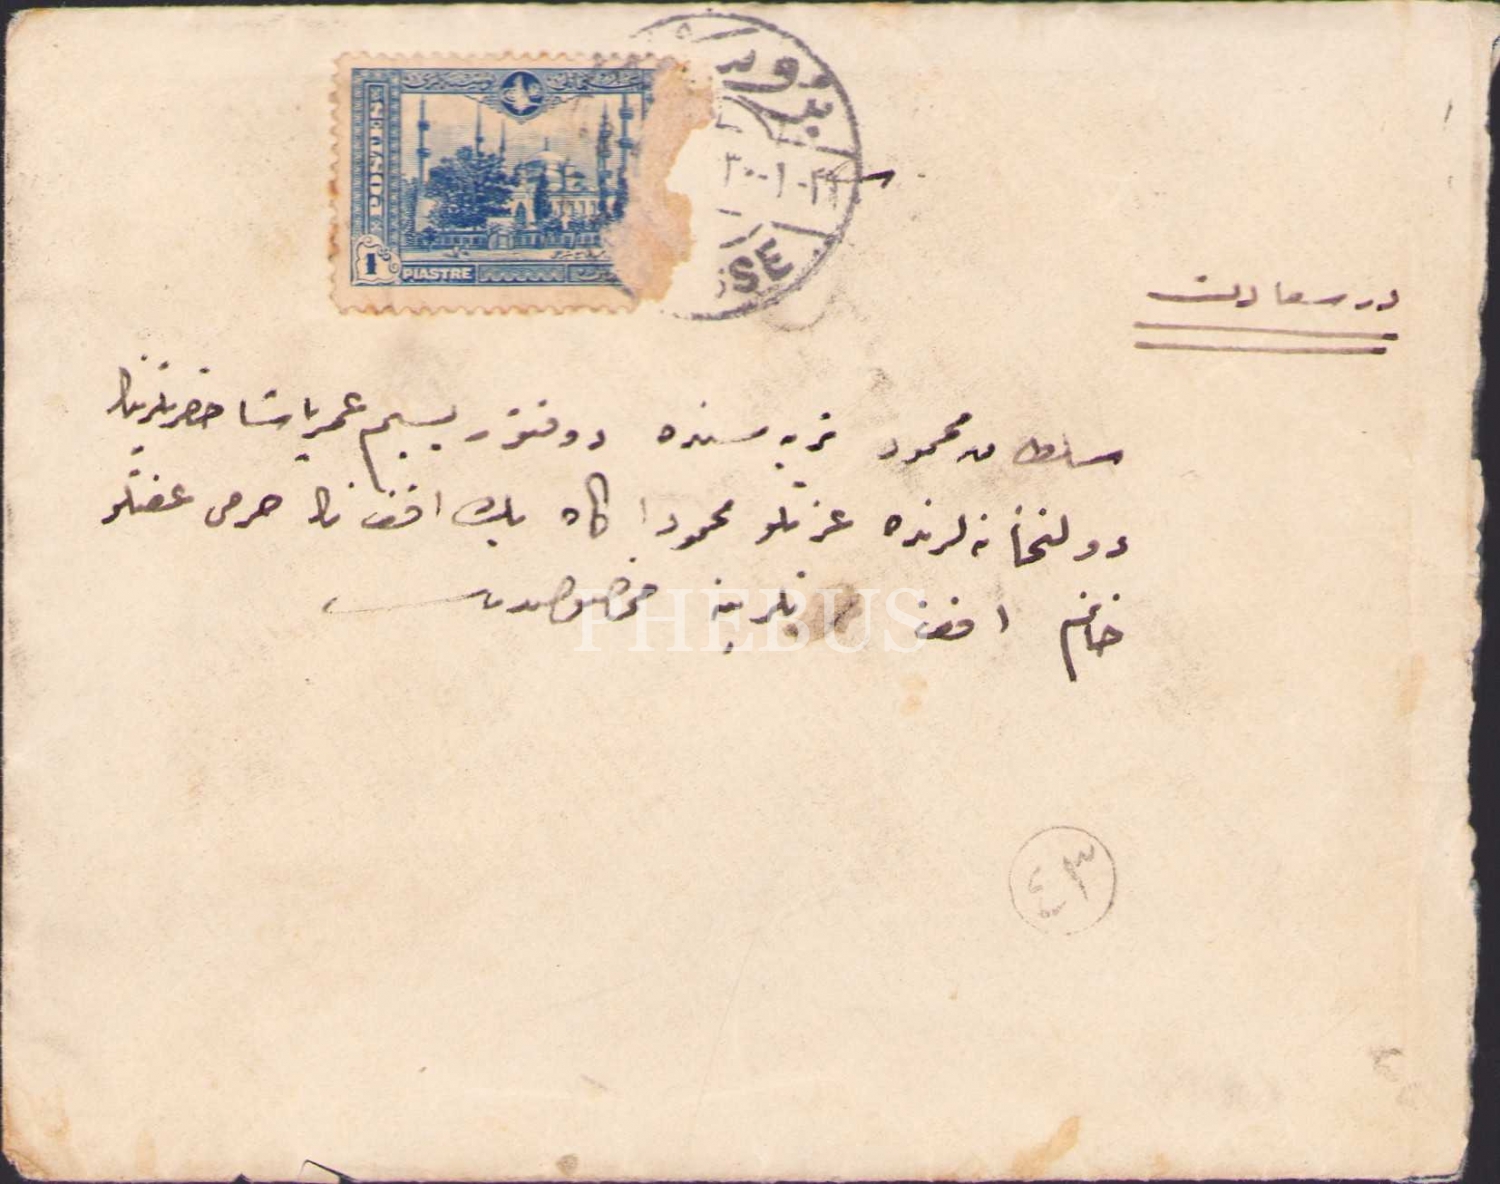 POSTES
1 PIASTRE
بروسه
٣٠-١-٣
SE
در سعادت
سلطان محمود تربه سنده دوقتور بسیم عمر پاشا حضرتلرینك
دولتخانه لرنده عزتلو محمود اكاه بك افندینك حرمی عفتلو
خانم افندی یه مخصوصدر
٤٣
PHEBUS